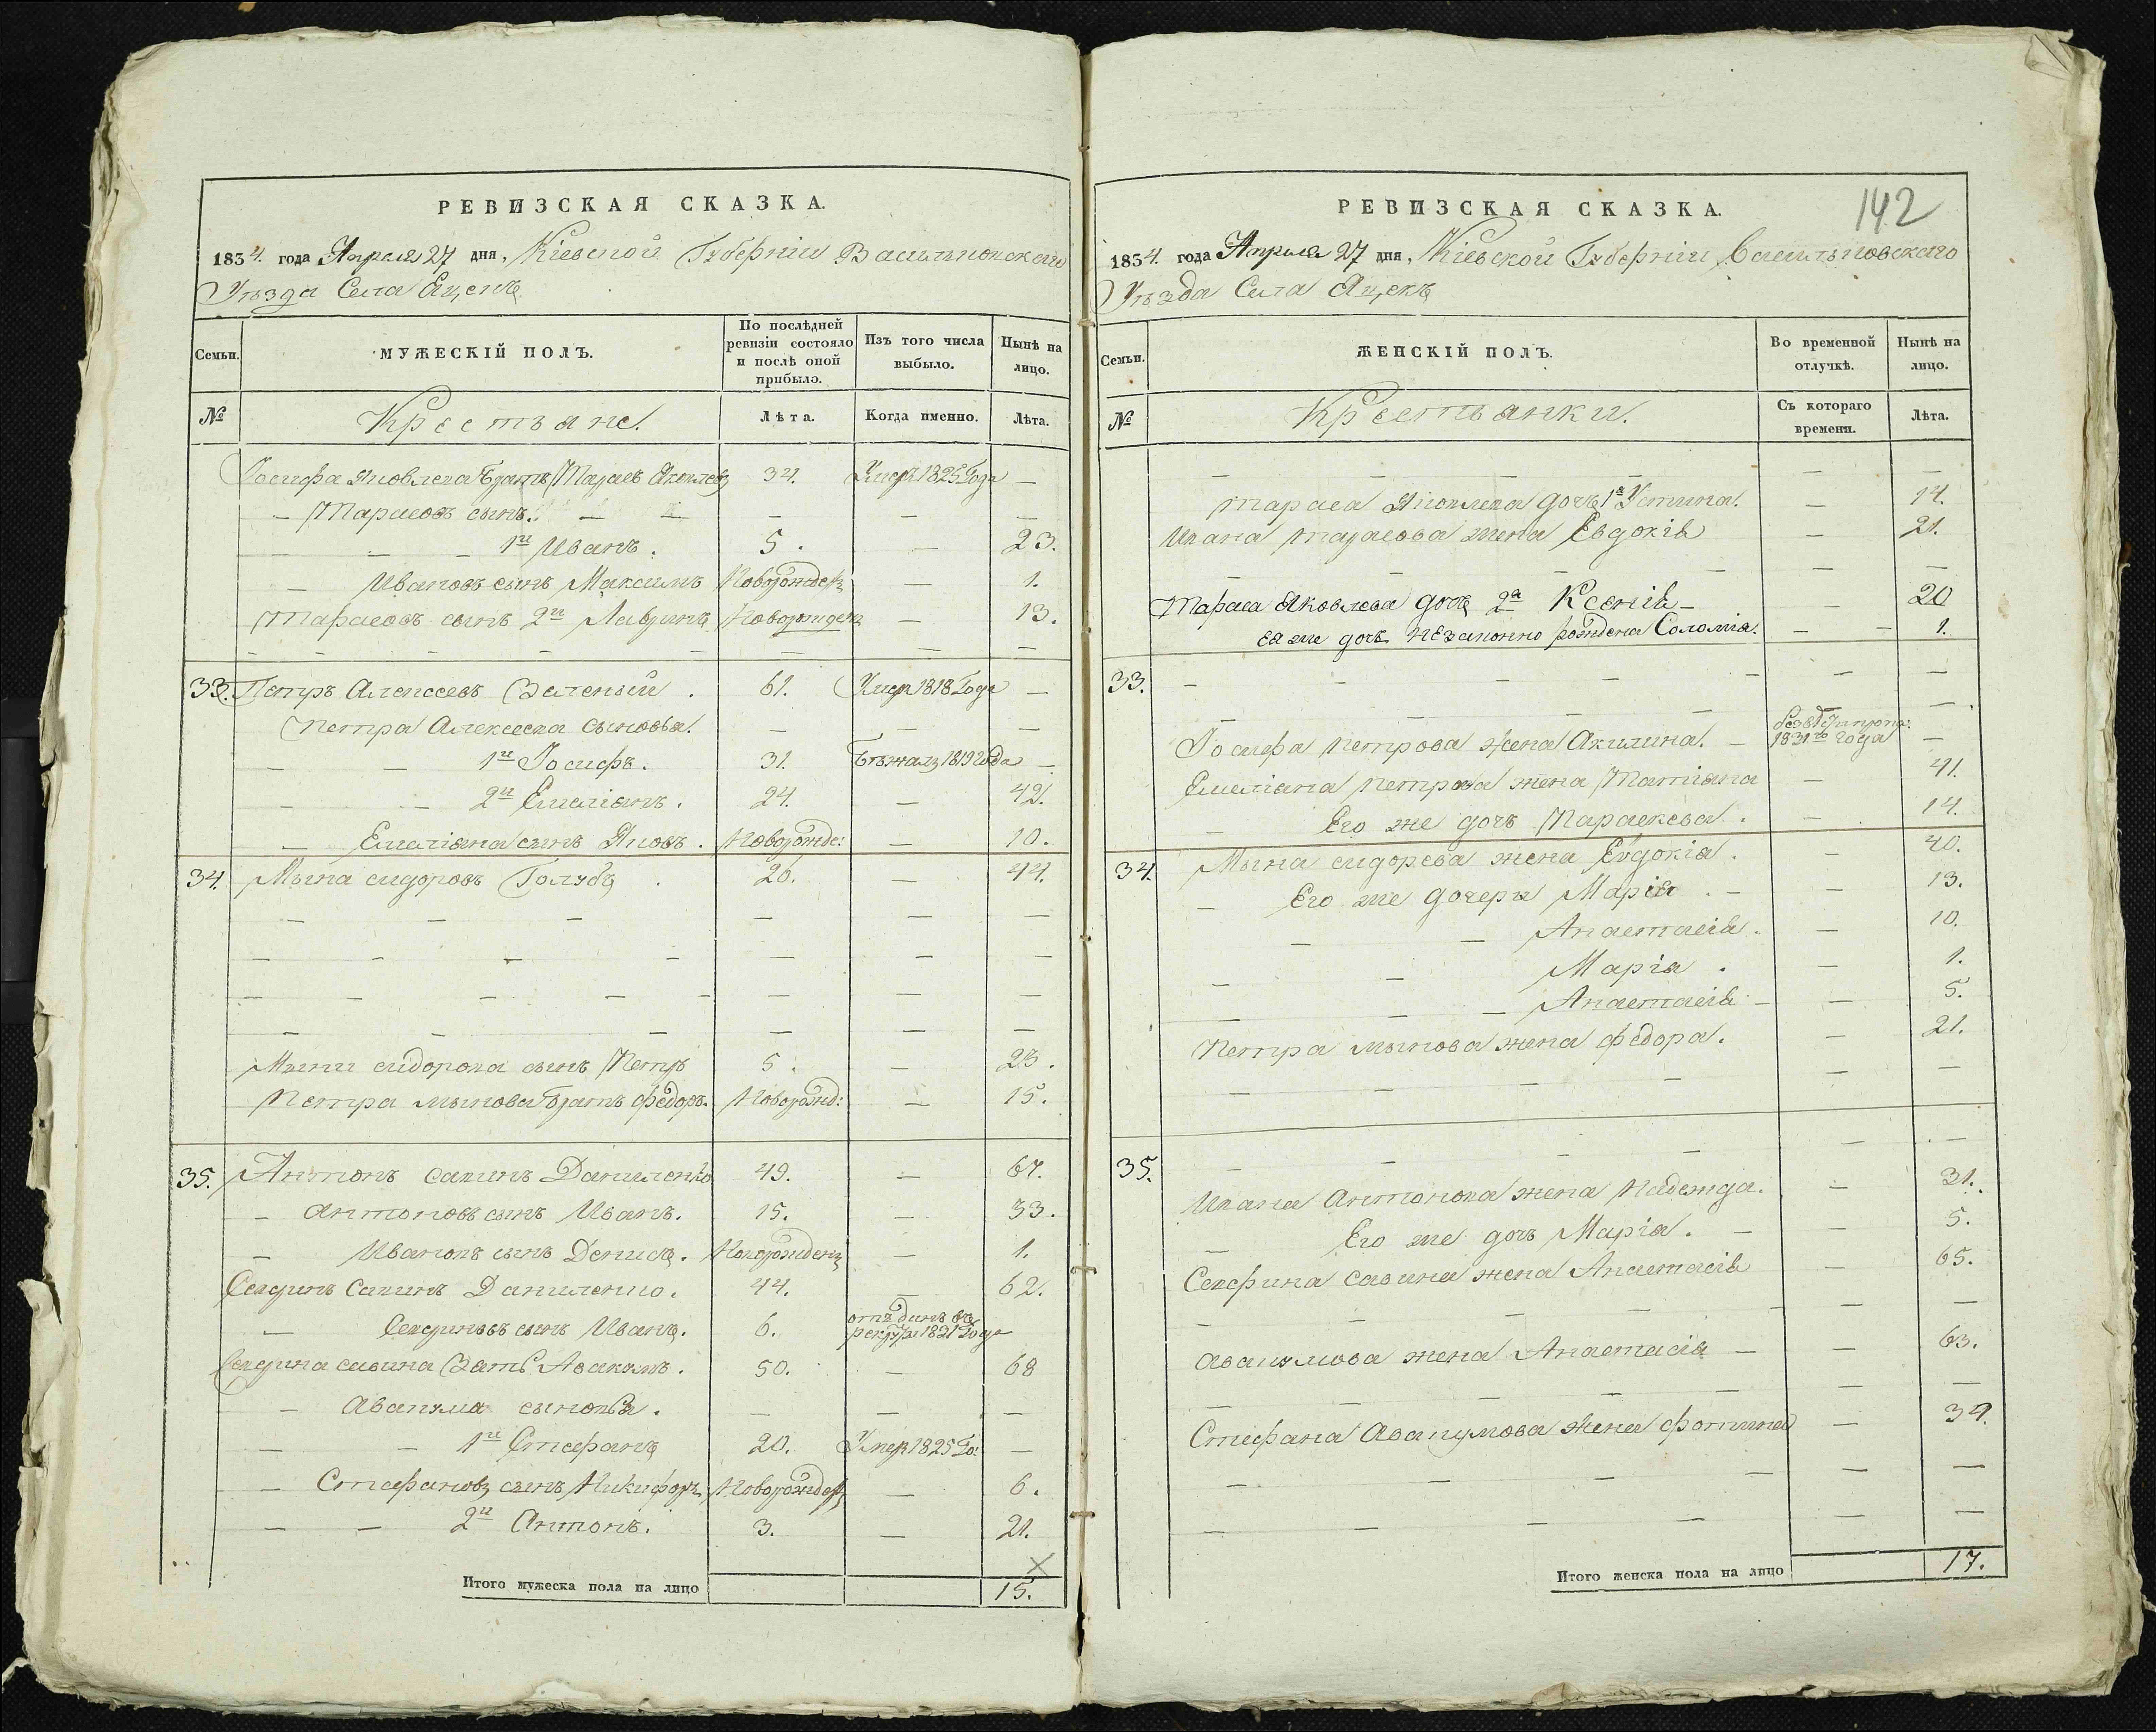 РЕВИЗСКАЯ СКАЗКА.
1834. года Апреля 27 дня, Кіевской Губерніи Васильковскаго
Уѣзда Села Яцекъ
Семьи.
МУЖЕСКІЙ ПОЛЪ.
По послѣдней ревизіи состояло и послѣ оной прибыло.
Изъ того числа выбыло.
Нынѣ на лицо.
№
Крестьяне.
Лѣта.
Когда именно.
Лѣта.
Іосифа Яковлева братъ Тарасъ Яковлевъ 34. Умеръ 1825 Года —
— Тарасовъ сынъ. — — — — —
— — — 1й Иванъ. 5. — 23.
— Ивановъ сынъ Максимъ Новорожденъ — 1.
Тарасовъ сынъ 2й Лавринъ Новорожденъ — 13.
— — — — — — — —
33. Петръ Алексеевъ Зеленый. 61. Умеръ 1818 Года —
Петра Алексеева сыновья. — — —
— — 1й Іосифъ. 31. Бѣжалъ 1819 года —
— — 2й Емеліанъ. 24. — 42.
— Емеліана сынъ Яковъ. Новорожде: — 10.
34. Мына сидоровъ Голубъ. 26. — 44.
— — — — — — —
— — — — — — —
— — — — — — — —
— — — — — —
Мыны сидорова сынъ Петръ 5. — 23.
Петра мынова братъ федоръ. Новорожд: — 15.
35. Антонъ савинъ Даниленко 49. — 67.
— Антоновъ сынъ Иванъ. 15. — 33.
— Ивановъ сынъ Денисъ. Новорожденъ — 1.
Северинъ Савинъ Даниленко. 44. — 62.
— Севериновъ сынъ Иванъ. 6. отъданъ въ рекруты 1821 Года
Северина савина Зять Авакумъ. 50. — 68
— Авакума сыновья. — — —
— — 1й Стефанъ 20. Умеръ 1825 Го: —
— Стефановъ сынъ Никифоръ Новорожденъ — 6.
— — 2й Антонъ. 3. — 21.
Итого мужеска пола на лицо 15.
142
РЕВИЗСКАЯ СКАЗКА.
1834. года Апреля 27 дня, Кіевской Губерніи Васильковскаго
Уѣзда Села Яцекъ
Семьи.
ЖЕНСКІЙ ПОЛЪ.
Во временной отлучкѣ.
Нынѣ на лицо.
№
Крестьянки.
Съ котораго времени.
Лѣта.
— — — — — —
Тараса Яковлева дочь 1я Устина. — 14.
Ивана тарасова жена Евдокія — 21.
— — — — — —
Тараса Яковлева дочь 2я Ксенія — — 20
ея же дочь незаконно рождена Соломія. — — 1.
33. — — — — — —
— — — — —
Іосифа петрова жена Акилина. — 1831го года —
Емеліана петрова жена Татіана — 41.
— Его же дочь Параскева. — 14.
34. Мына сидорова жена Евдокія. — 40.
— Его же дочери Марія. — — 13.
— — Анастасія. — 10.
— — Марія. — 1.
— — — Анастасія — — 5.
Петра мынова жена федора. — 21.
— — — — — —
35. — — — — —
Ивана Антонова жена Надежда. — 31.
— Его же дочь Марія. — — 5.
Северина савина жена Анастасія — 65.
— — — — — — —
Авакумова жена Анастасія — — 63.
— — — — — —
Стефана Авакумова жена фотина — 39.
— — — — — —
— — — — — — —
Итого женска пола на лицо 17.